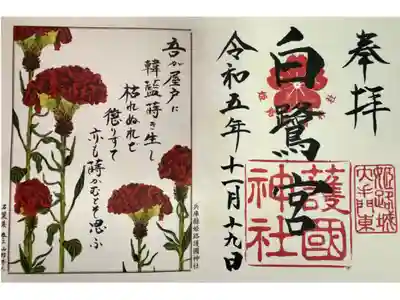 奉拝
姫路城
大手門東
白鷺宮
護國
神社
令和五年十一月十九日
吾が屋戸に
韓藍蒔き生し
枯れぬれど
懲りずて
亦も蒔かむとそ思ふ
兵庫縣姫路護國神社